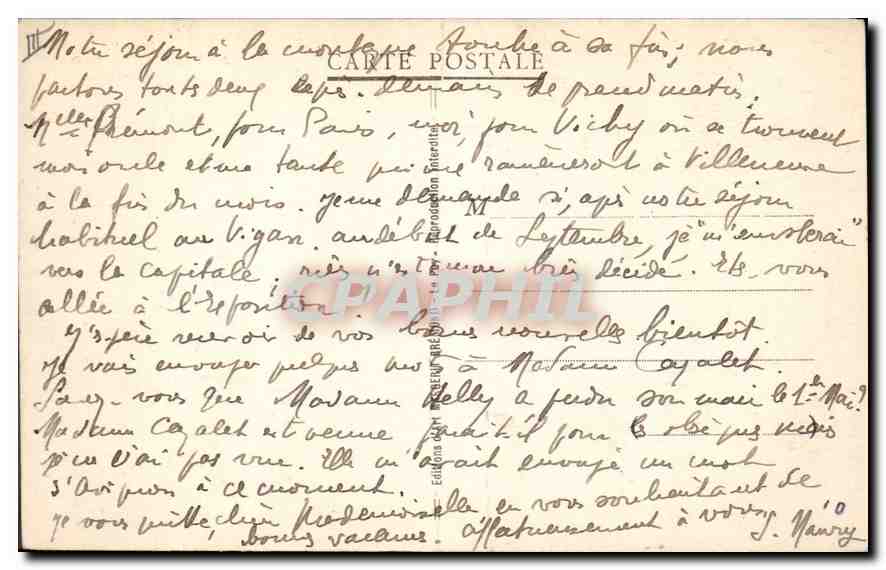 III
Notre séjour à la montagne touche à sa fin; nous
CARTE POSTALE
partons toutes deux après-demain de grand matin,
Mlle Frémont, pour Paris, moi, pour Vichy où se trouvent
mon oncle et ma tante qui me ramèneront à Villeneuve
à la fin du mois. Je me demande si, après notre séjour
M
habituel au Vigan, au début de Septembre, je "m'envolerai"
vers la capitale, rien n'est encore bien décidé. Etes-vous
allée à l'Exposition
J'espère recevoir de vos bonnes nouvelles bientôt.
Je vais envoyer quelques mots à Madame Cazalet.
Savez-vous que Madame Nelly a perdu son mari le 1er Mai?
Madame Cazalet est venue paraît-il pour les obsèques mais
je ne l'ai pas vue. Elle m'avait envoyé un mot
d'Avignon à ce moment.
Je vous quitte, chère Mademoiselle en vous souhaitant de
bonnes vacances. affectueusement à vous
S. Maury
Editions d'art MARGERIT-BREMOND - Le Puy - Reproduction interdite
CPAPHIL